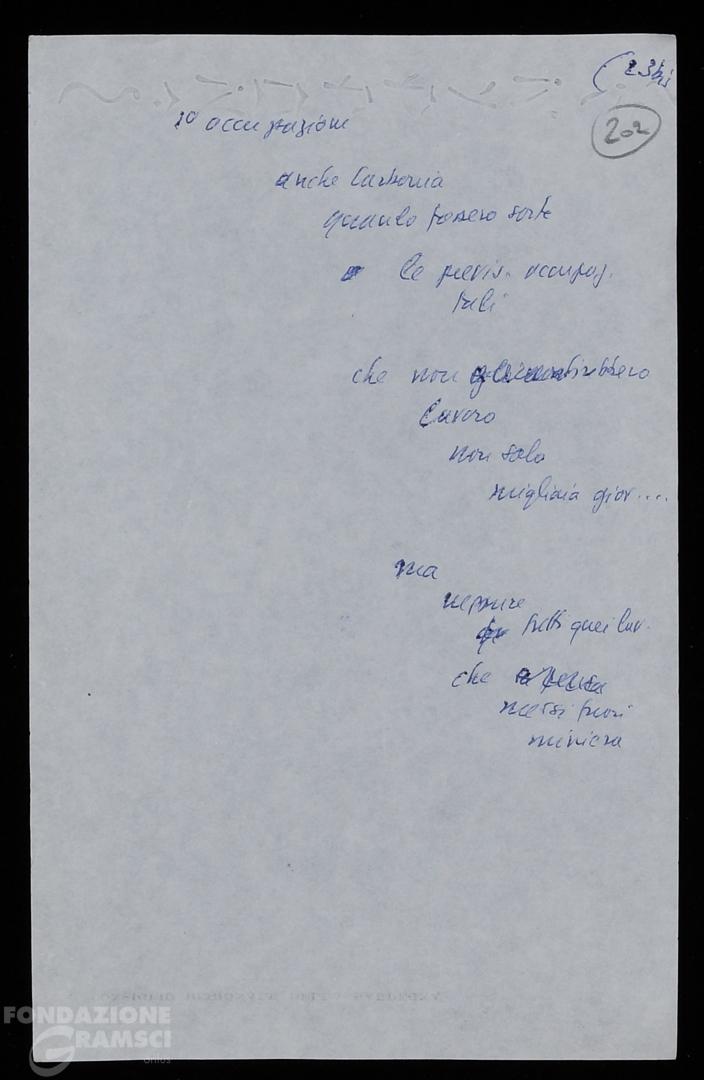 ( 23bis
202
1° occupazione
anche Carbonia
quando fossero sorte
le previs. occupaz.
tali
che non
lavoro
non solo
migliaia giov....
ma
neppure
tutti quei lav.
che
messi fuori
miniera
FONDAZIONE
GRAMSCI
onlus